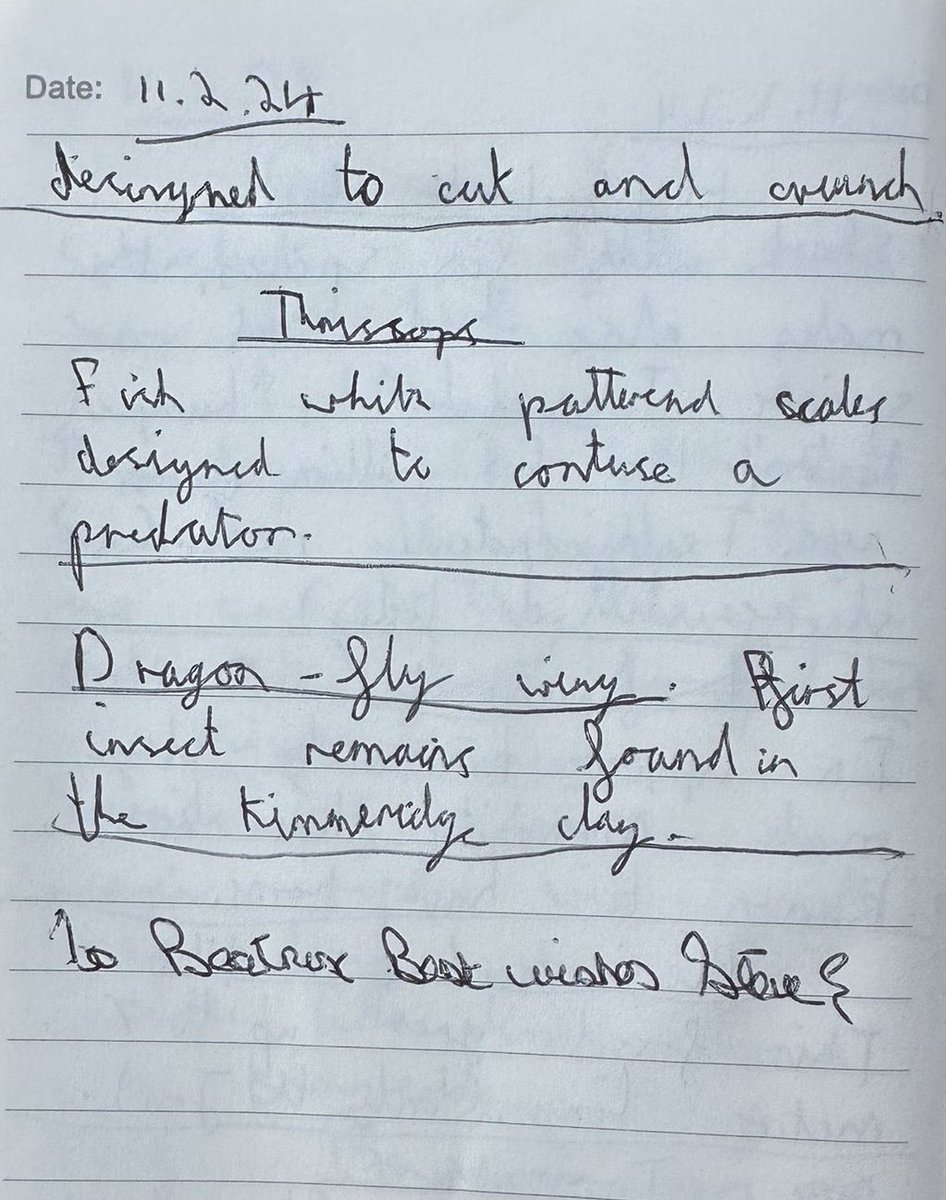 Date: 11.2.24
desingned to cut and crunch.
Thrissops
Fish whith patterend scales
designed to confuse a
predator.
Dragon-fly wing. First
insect remains found in
the Kimmeridge clay.
To Beatrix Best wishes Steve